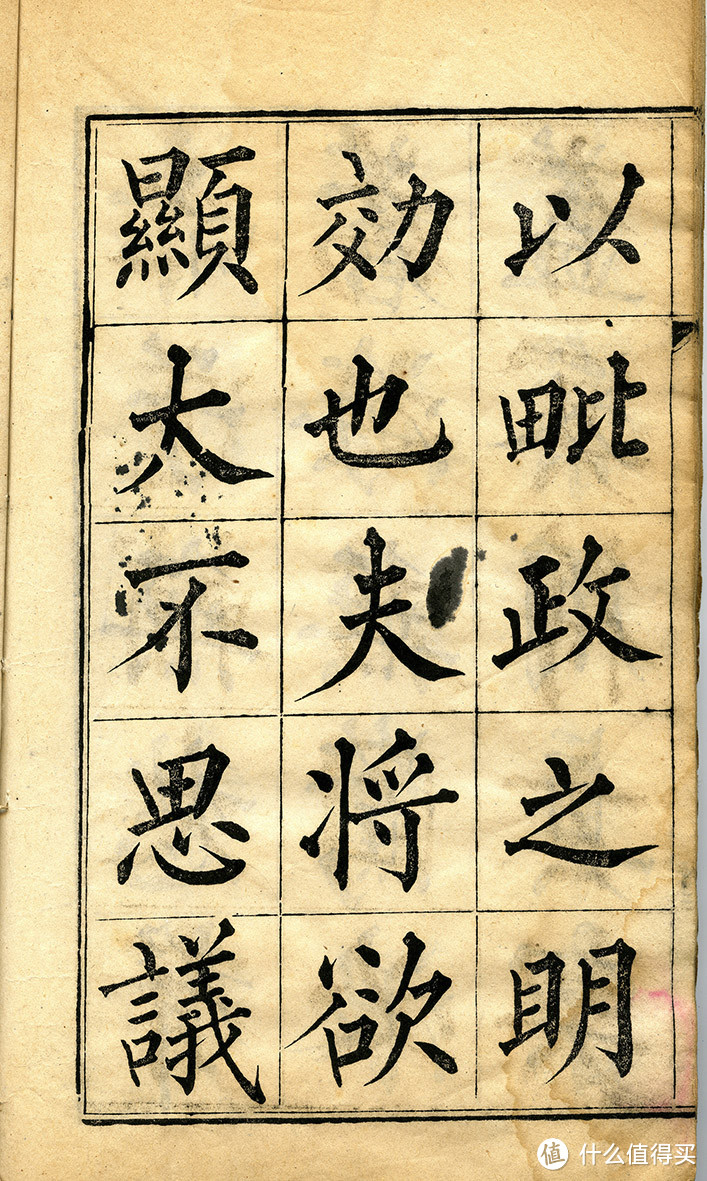 以毗政之明
効也夫将欲
顯大不思議
值 什么值得买